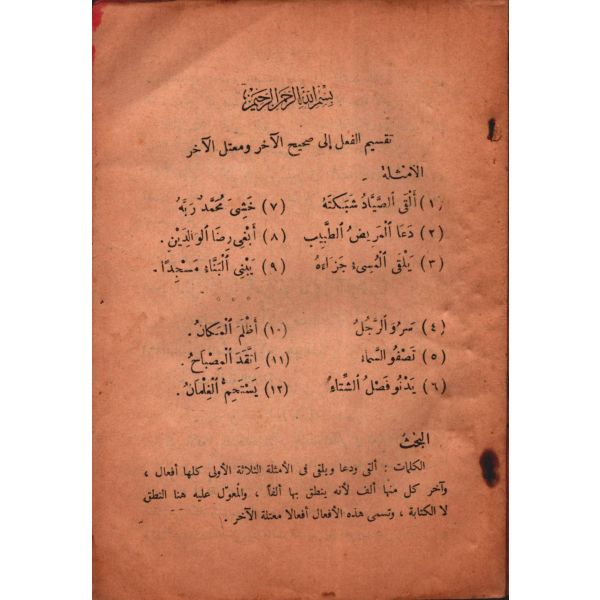 بسم الله الرحمن الرحيم
تقسيم الفعل إلى صحيح الآخر ومعتل الآخر
الأمثلة -
(١) أَلْقَى الصَّيَّادُ شَبَكَتَهُ (٧) خَشِىَ مُحَمَّدٌ رَبَّهُ
(٢) دَعَا الْمَرِيضُ الطَّبِيبَ (٨) أَبْغِى رِضَا الْوَالِدَيْنِ .
(٣) يَلْقَى الْمُسِىءُ جَزَاءَهُ (٩) يَبْنِى الْبَنَّاءُ مَسْجِدًا .
(٤) سَرُوَ الرَّجُلُ (١٠) أَظْلَمَ الْمَكَانُ .
(٥) تَصْفُو السَّمَاءُ (١١) اِتَّقَدَ الْمِصْبَاحُ .
(٦) يَدْنُو فَصْلُ الشِّتَاءِ (١٢) يَسْتَحِمُّ الْغِلْمَانُ .
البحث
الكلمات : ألقى ودعا ويلقى فى الأمثلة الثلاثة الأولى كلها أفعال ،
وآخر كل منها ألف لأنه ينطق بها ألفاً ، والمعوّل عليه هنا النطق
لا الكتابة ، وتسمى هذه الأفعال أفعالا معتلة الآخر .